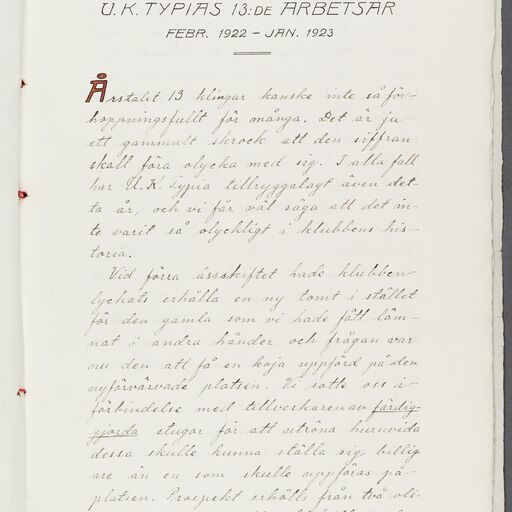 U.K. TYPIAS 13:DE ARBETSÅR
FEBR. 1922 – JAN. 1923
Årstalet 13 klingar kanske inte så för-
hoppningsfullt för många. Det är ju
ett gammalt skrock att den siffran
skall föra olycka med sig. I alla fall
har U.K. Typia tillryggalagt även det-
ta år, och vi får väl säga att det in-
te varit så olyckligt i klubbens his-
toria.
Vid förra årsskiftet hade klubben
lyckats erhålla en ny tomt i stället
för den gamla som vi hade fått läm-
nat i andra händer och frågan var
nu den att få en koja uppförd på den
nyförvärvade platsen. Vi satte oss i
förbindelse med tillverkaren av färdig-
gjorda stugor för att utröna huruvida
dessa skulle kunna ställa sig billig
are än en som skulle uppföras på
platsen. Prospekt erhölls från två oli-